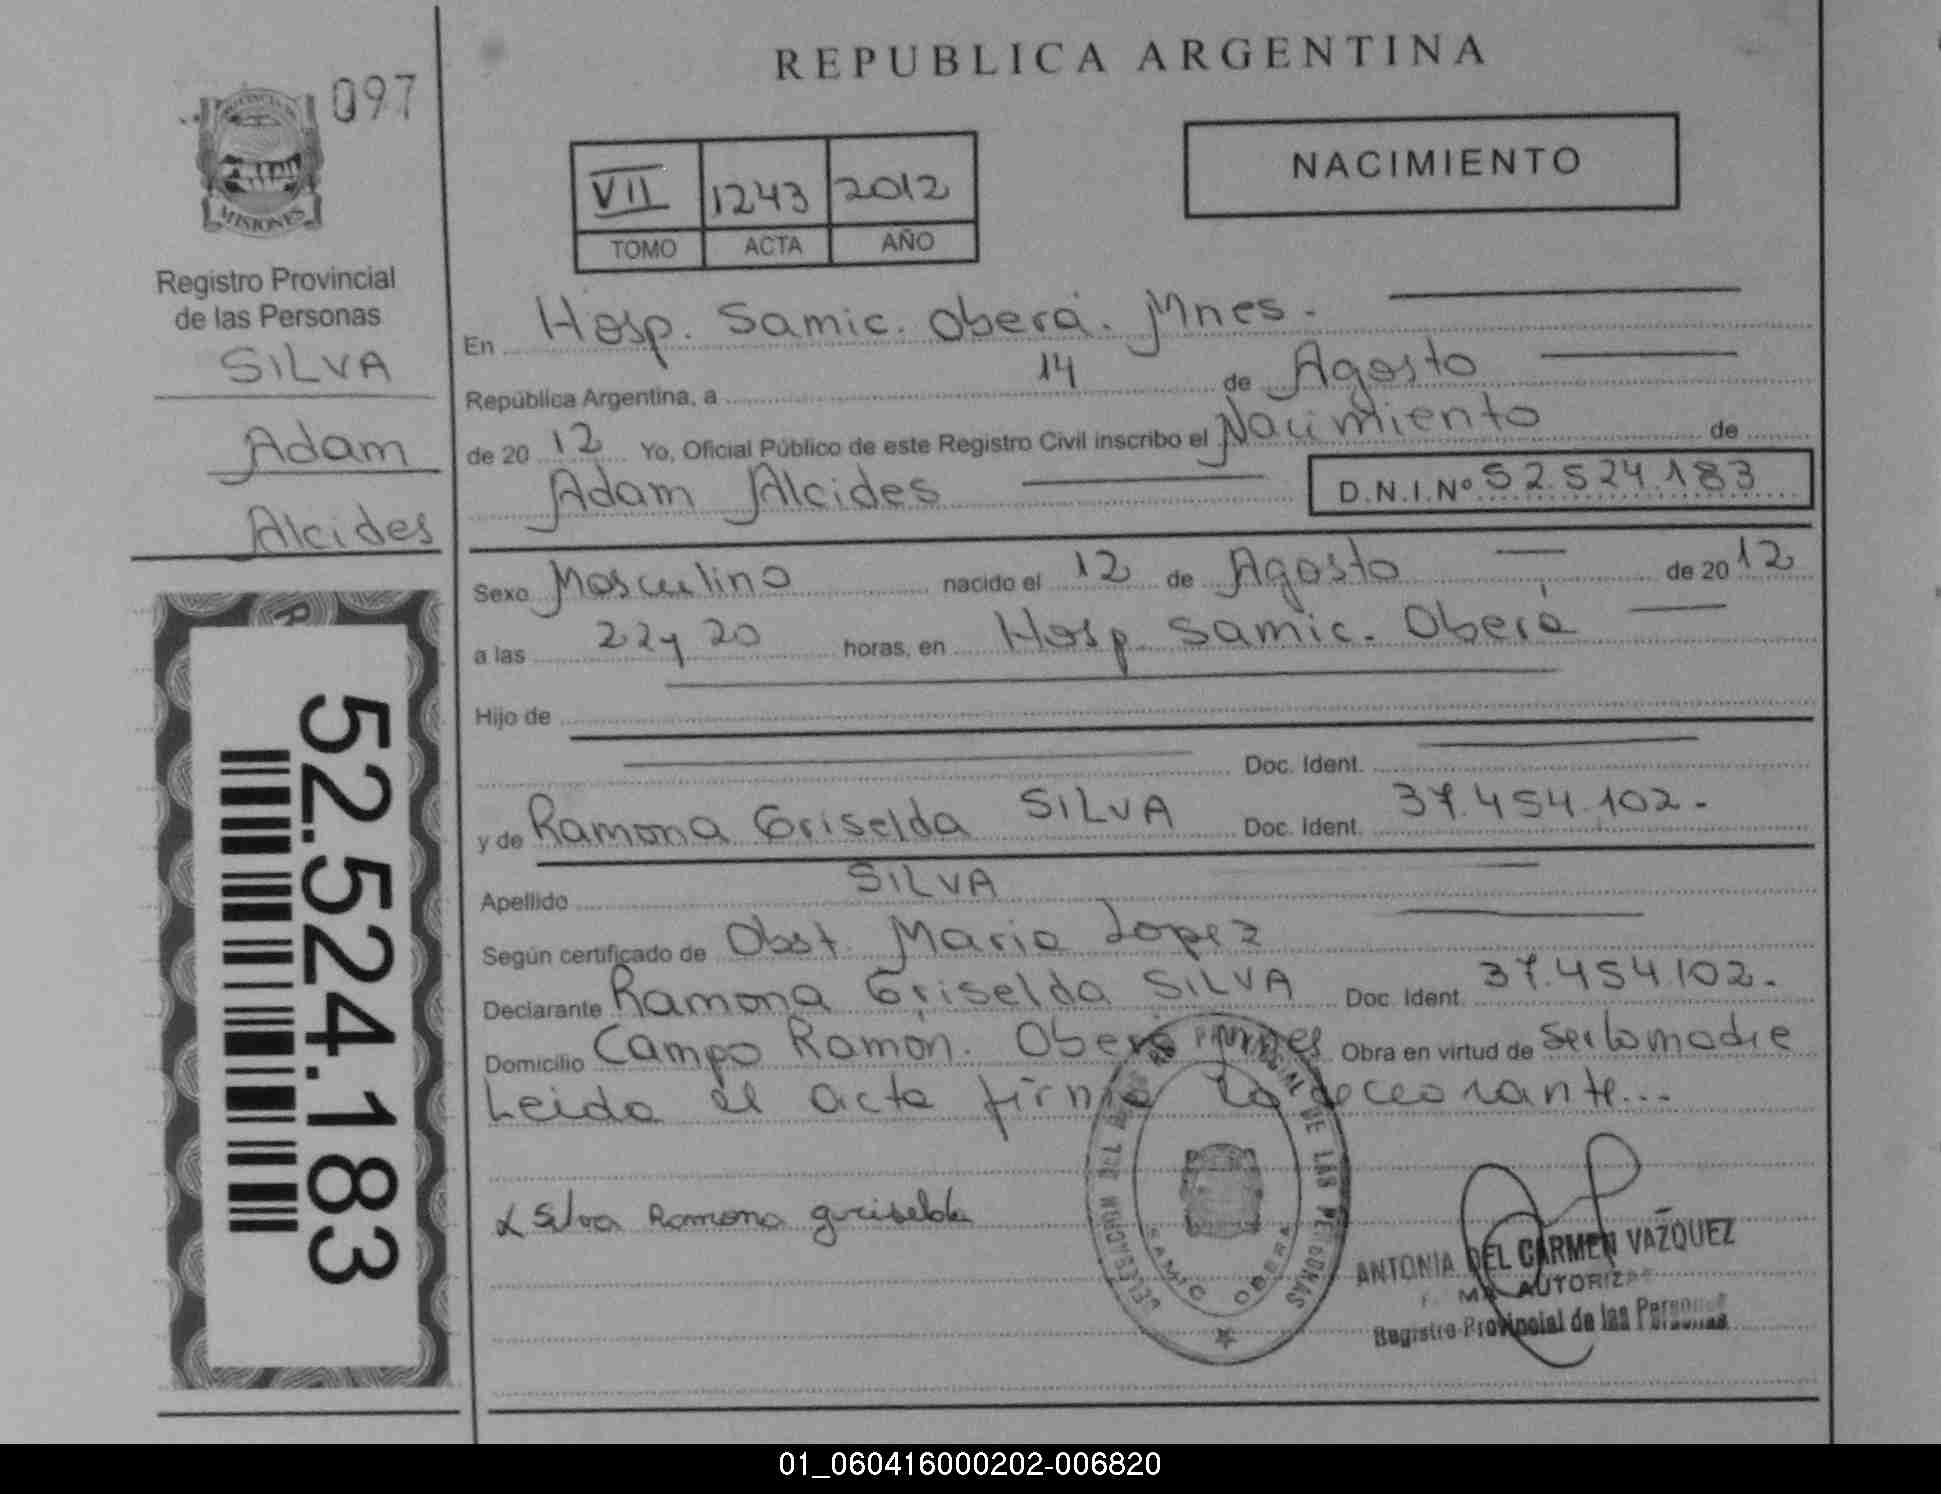 REPUBLICA ARGENTINA
097
MISIONES
Registro Provincial
de las Personas
SILVA
Adam
Alcides
52.524.183
VII 1243 2012
TOMO ACTA AÑO
NACIMIENTO
En Hosp. Samic. Oberá. Mnes.
República Argentina, a 14 de Agosto
de 20 12 Yo, Oficial Público de este Registro Civil inscribo el Nacimiento de
Adam Alcides D.N.I.Nº 52.524.183
Sexo Masculino nacido el 12 de Agosto de 20 12
a las 22 y 20 horas, en Hosp. Samic. Oberá
Hijo de
Doc. Ident.
y de Ramona Griselda SILVA Doc. Ident. 37.454.102.-
Apellido SILVA
Según certificado de Obst. Maria Lopez
Declarante Ramona Griselda SILVA Doc. Ident. 37.454.102.-
Domicilio Campo Ramón. Oberá Mnes Obra en virtud de ser la madre
Leida el acta firma la declarante...
Silva Ramona griselda
DE LAS PERSONAS
SAMIC OBERA
ANTONIA DEL CARMEN VAZQUEZ
Registro Provincial de las Personas
01_060416000202-006820